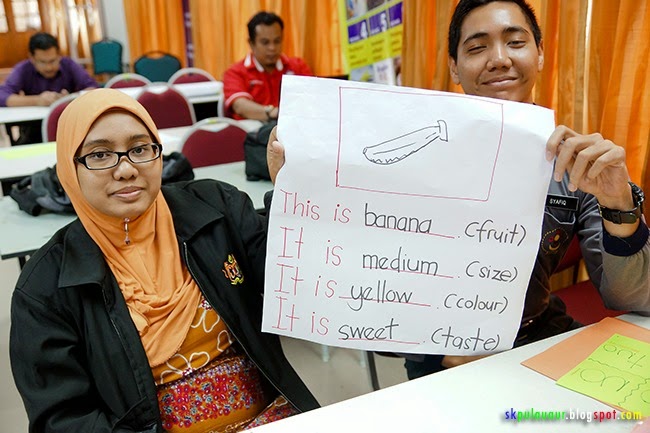 This is banana. (fruit)
It is medium. (size)
It is yellow. (colour)
It is sweet. (taste)
SYAFIQ
skpulauaur.blogspot.com